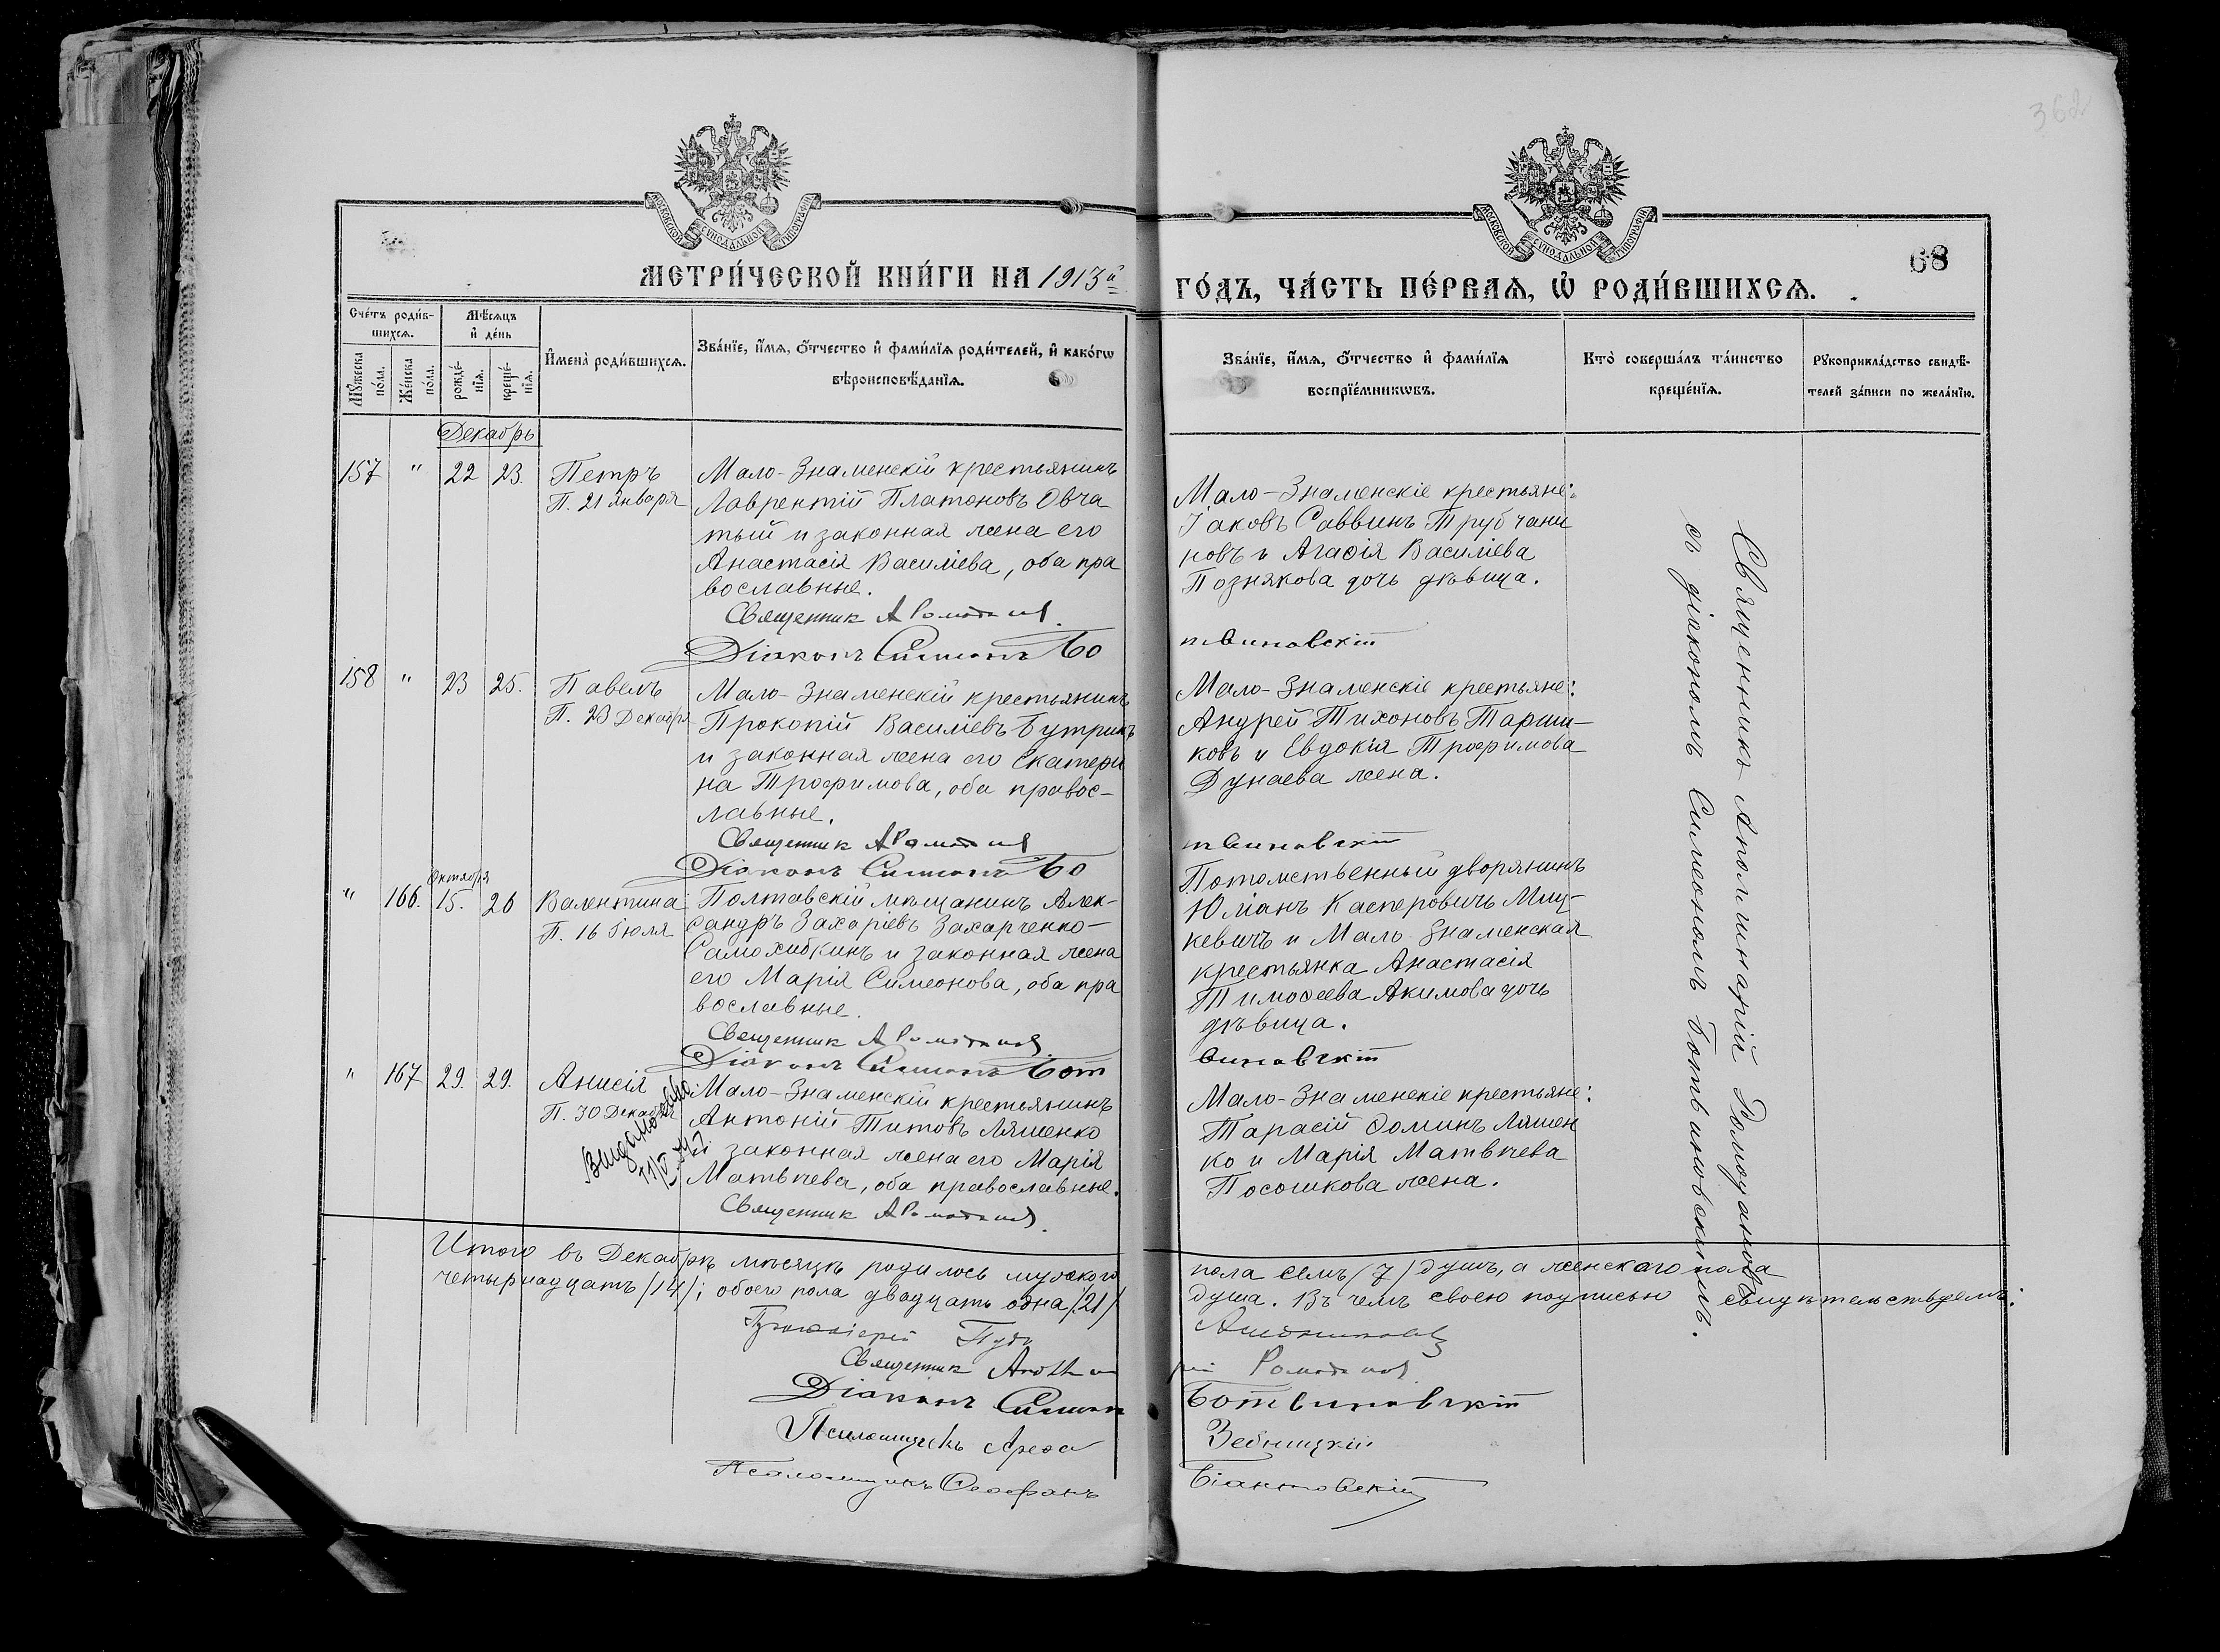 362
МОСКОВСКОЙ СѴНОДАЛЬНОЙ ТИПОГРАФІИ
МОСКОВСКОЙ СѴНОДАЛЬНОЙ ТИПОГРАФІИ
68
МЕТРИ́ЧЕСКОЙ КНИ́ГИ НА 1913й
ГО́ДЪ, ЧА́СТЬ ПЕ́РВАѦ, Ѡ҆ РОДИ́ВШИХСѦ.
Сче́тъ роди́в-
шихсѧ.
Мꙋ́жеска
по́ла.
Же́нска
по́ла.
Мѣ́сѧцъ
и҆ де́нь
рожде́-
нїѧ.
креще́-
нїѧ.
И҆мена̀ роди́вшихсѧ.
Зва́нїе, и҆́мѧ, ѻ҆́тчество и҆ фами́лїѧ роди́телей, и҆ како́гѡ
вѣроисповѣ́данїѧ.
Зва́нїе, и҆́мѧ, ѻ҆́тчество и҆ фами́лїѧ
воспрїе́мникѡвъ.
Кто̀ соверша́лъ та́инство
креще́нїѧ.
Рꙋкоприкла́дство свидѣ́-
телей за́писи по жела́нїю.
Декабрь
157 " 22 23.
Петръ
П. 21 Января
Мало-Знаменскій крестьянинъ
Лаврентій Платоновъ Овча
тый и законная жена его
Анастасія Василіева, оба пра
вославные.
Священник А Ромоданов.
Діаконъ Симеонъ Бо
Мало-Знаменскіе крестьяне:
Іаковъ Саввинъ Трубчани
новъ и Агафія Василіева
Познякова дочь дѣвица.
твиновскій
158 " 23 25.
Павелъ
П. 23 Декабря
Мало-Знаменскій крестьянинъ
Прокопій Василіевъ Бутринъ
и законная жена его Екатери
на Трофимова, оба правос-
лавные.
Священник А Ромоданов
Діаконъ Симеонъ Бо
Мало-Знаменскіе крестьяне:
Андрей Тихоновъ Парши-
ковъ и Евдокія Трофимова
Дунаева жена.
твиновскій
Октября
" 166. 15. 26
Валентина
П. 16 Іюля
Полтавскій мѣщанинъ Алек-
сандръ Захаріевъ Захарченко-
Самохибкинъ и законная жена
его Марія Симеонова, оба пра
вославные.
Священник А Ромоданов.
Діаконъ Симеонъ Бот
Потомственный дворянинъ
Юліанъ Касперовичъ Миц-
кевичъ и Мало-Знаменская
крестьянка Анастасія
Тимофеева Акимова дочь
дѣвица.
виновскій
" 167 29. 29.
Анисія
П. 30 Декабря
Мало-Знаменскій крестьянинъ
Антоній Титовъ Ляшенко
и законная жена его Марія
Матвѣева, оба православные.
Священник А Ромоданов.
Мало-Знаменскіе крестьяне:
Тарасій Ѳоминъ Ляшен
ко и Марія Матвѣева
Посошкова жена.
Священникъ Аполлинарій Ромодановъ
съ діакономъ Симеономъ Ботвиновскимъ.
Итого въ Декабрѣ мѣсяцѣ родилось мужского
пола семь (7) душъ, а женского пола
четырнадцать (14); обоего пола двадцать одна (21)
душа. Въ чемъ своею подписью свидѣтельствуемъ:
Протоіерей
Священник
Ромоданов.
Діаконъ Симеонъ
Ботвиновскій
Псаломщикъ
Псаломщикъ Ѳеофанъ
Біантовскій